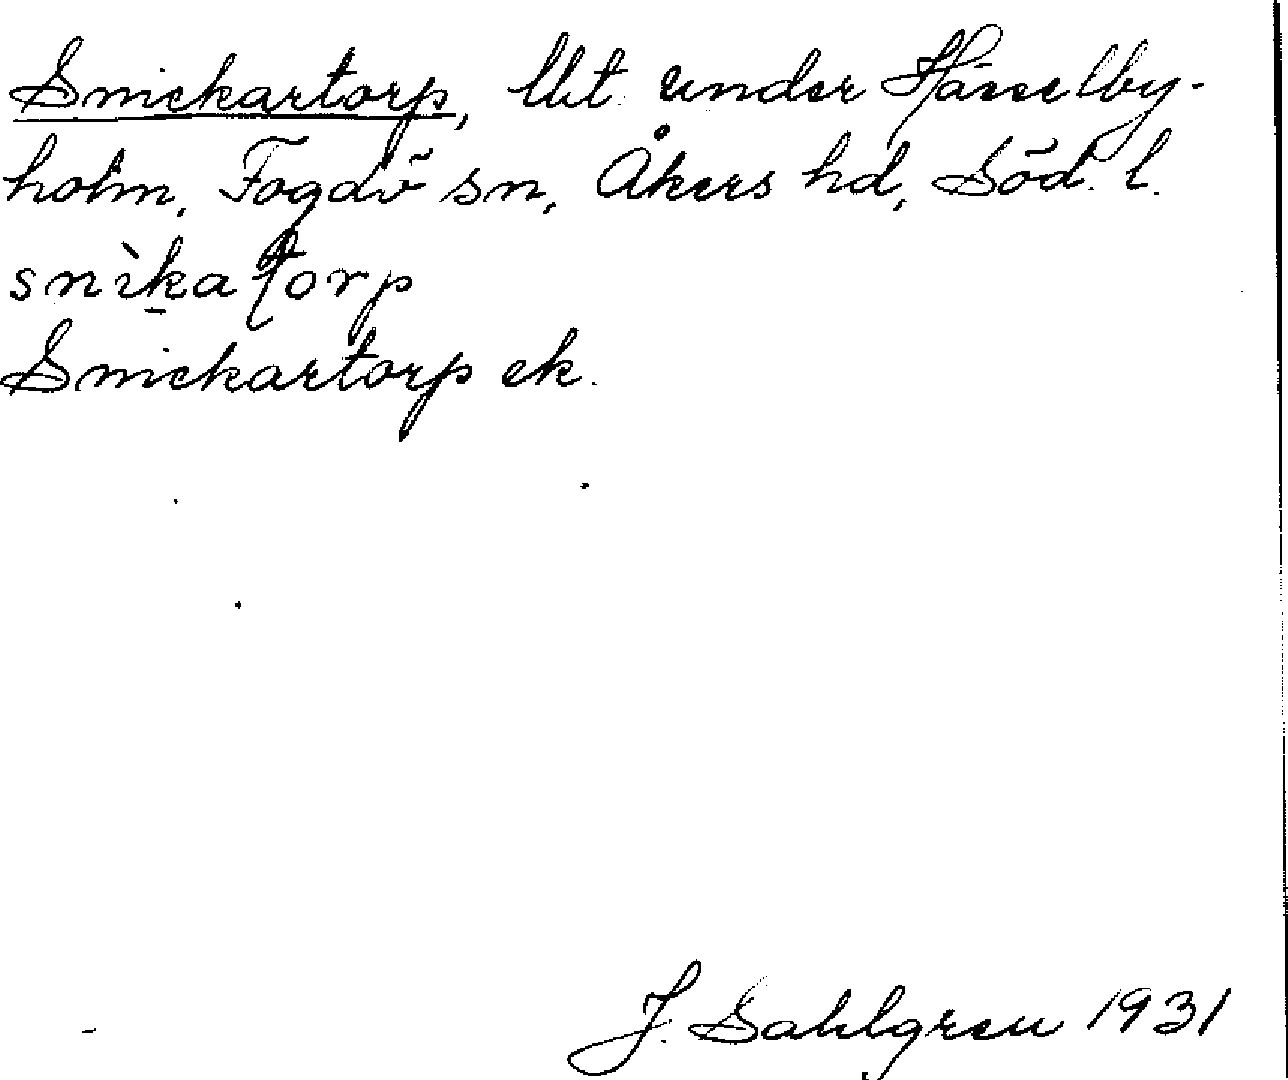 Snickartorp, lht under Hässelby-
holm, Fogdö sn, Åkers hd, Söd. l.
snìka torp
Snickartorp ek.
J. Sahlgren 1931